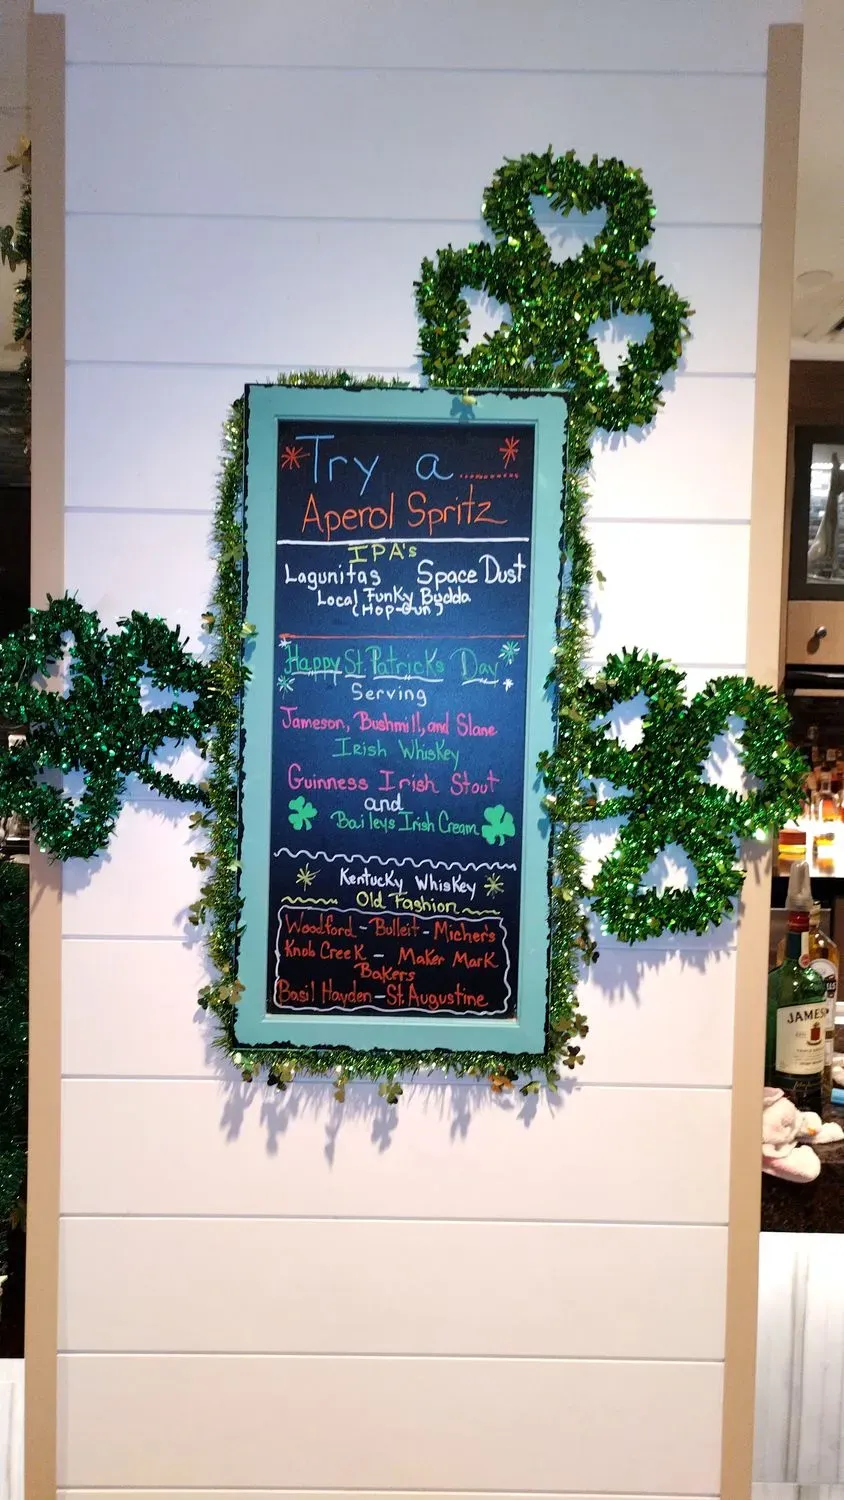 Try a..........
Aperol Spritz
IPA's
Lagunitas Space Dust
Local Funky Budda
(Hop-Gun)
Happy St. Patricks Day
Serving
Jameson, Bushmill, and Slane
Irish Whiskey
Guinness Irish Stout
and
Baileys Irish Cream
Kentucky Whiskey
Old Fashion
Woodford - Bulleit - Micher's
Knob Creek - Maker Mark
Bakers
Basil Hayden - St. Augustine
JAMES